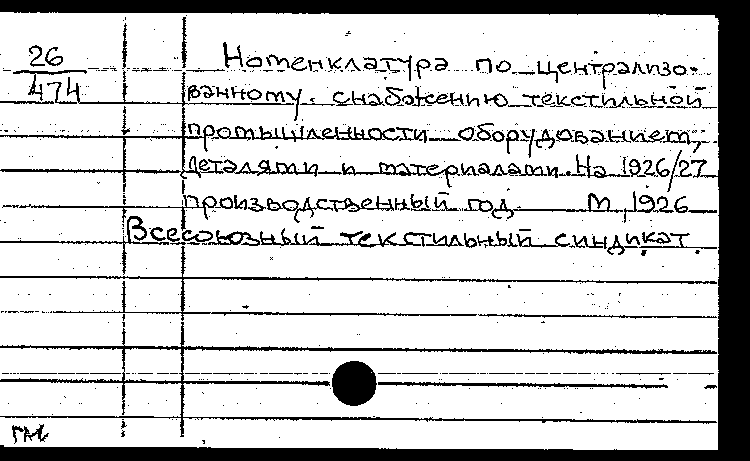 26
474
Номенклатура по централизо-
ванному снабжению текстильной
промышленности оборудованием,
деталями и материалами. На 1926/27
производственный год. М, 1926
Всесоюзный текстильный синдикат.